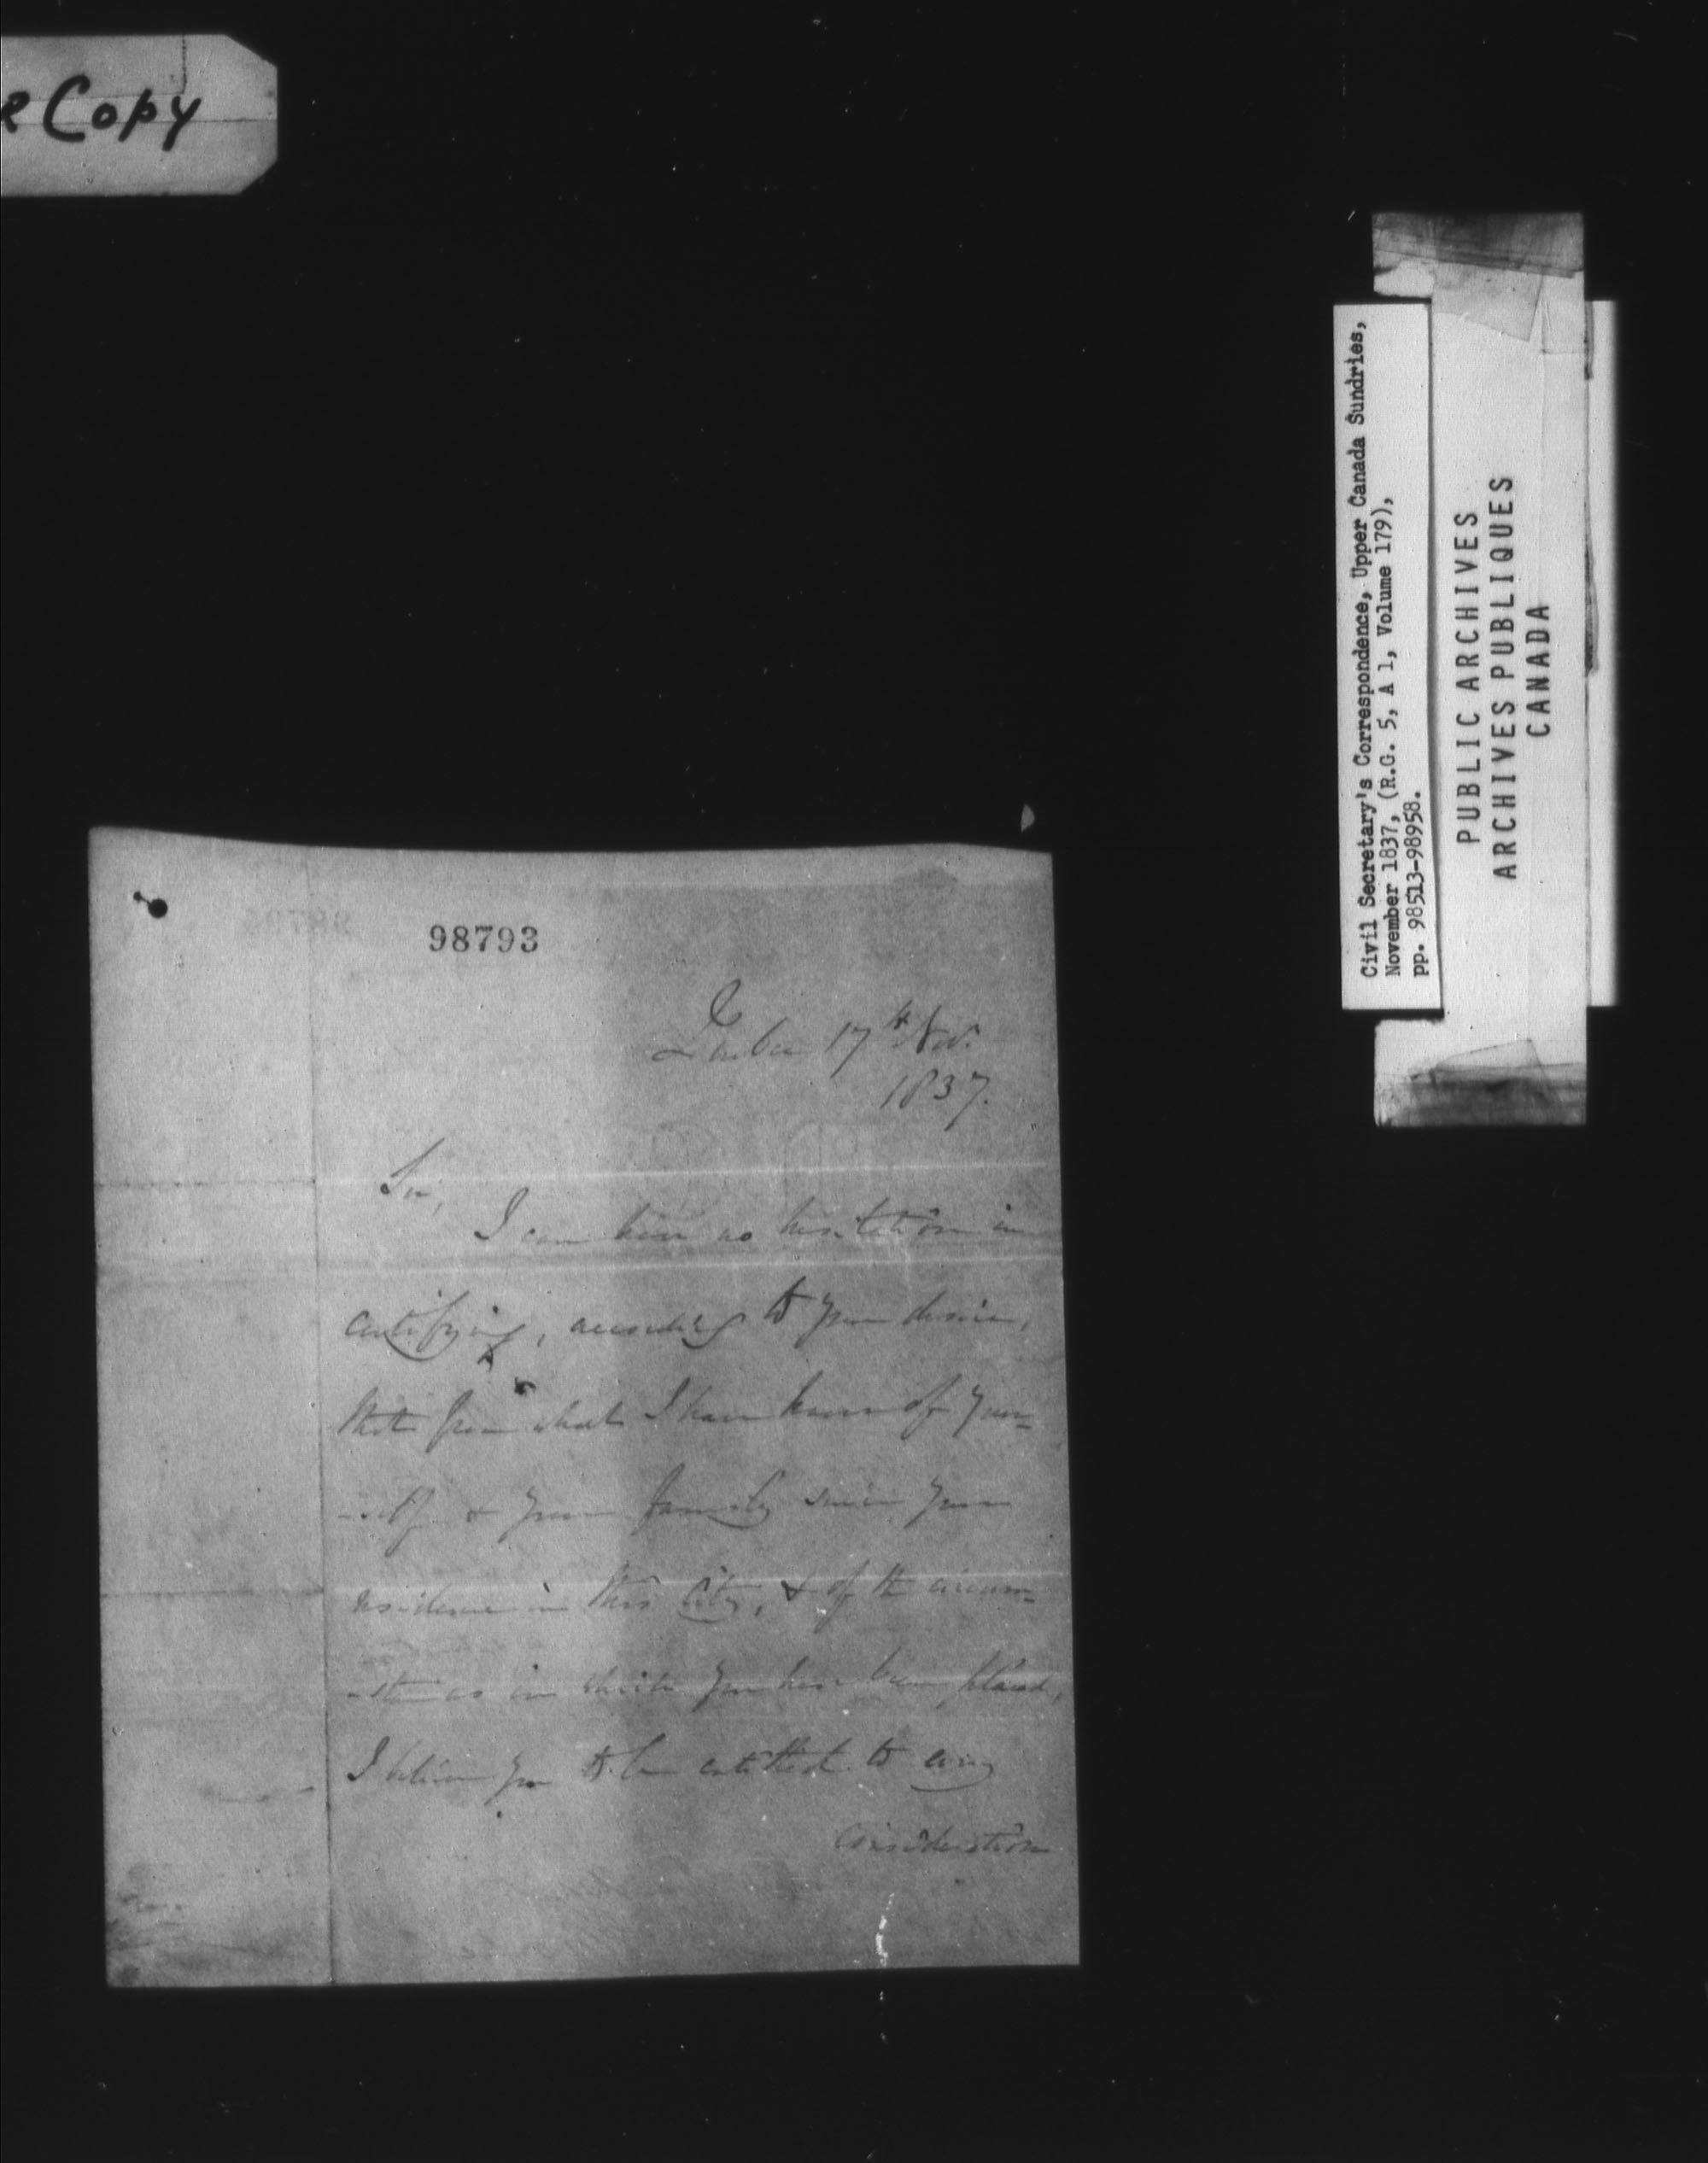 e Copy
Civil Secretary's Correspondence, Upper Canada Sundries,
November 1837, (R.G. 5, A 1, Volume 179),
pp. 98513-98958.
PUBLIC ARCHIVES
ARCHIVES PUBLIQUES
CANADA
98793
Quebec 17th Nov.
1837.
Sir,
I can have no hesitation in
certifying, according to your desire,
that from what I have known of your=
-self & your family since your
residence in this City, & of the circum=
-stances in which you have been placed,
I believe you to be entitled to any
consideration